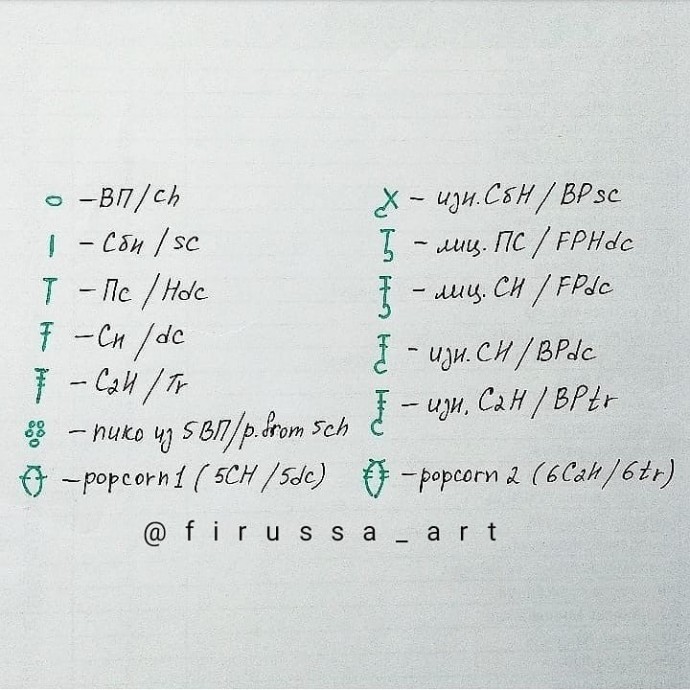 – ВП / ch
– Сбн / sc
– Пс / Hdc
– Сн / dc
– С2Н / Tr
– пико из 5 ВП / p. from 5ch
– popcorn 1 ( 5СН / 5dc )
– изн. СбН / BPsc
– лиц. ПС / FPHdc
– лиц. СН / FPdc
– изн. СН / BPdc
– изн. С2Н / BPtr
– popcorn 2 ( 6С2Н / 6tr )
@firussa_art